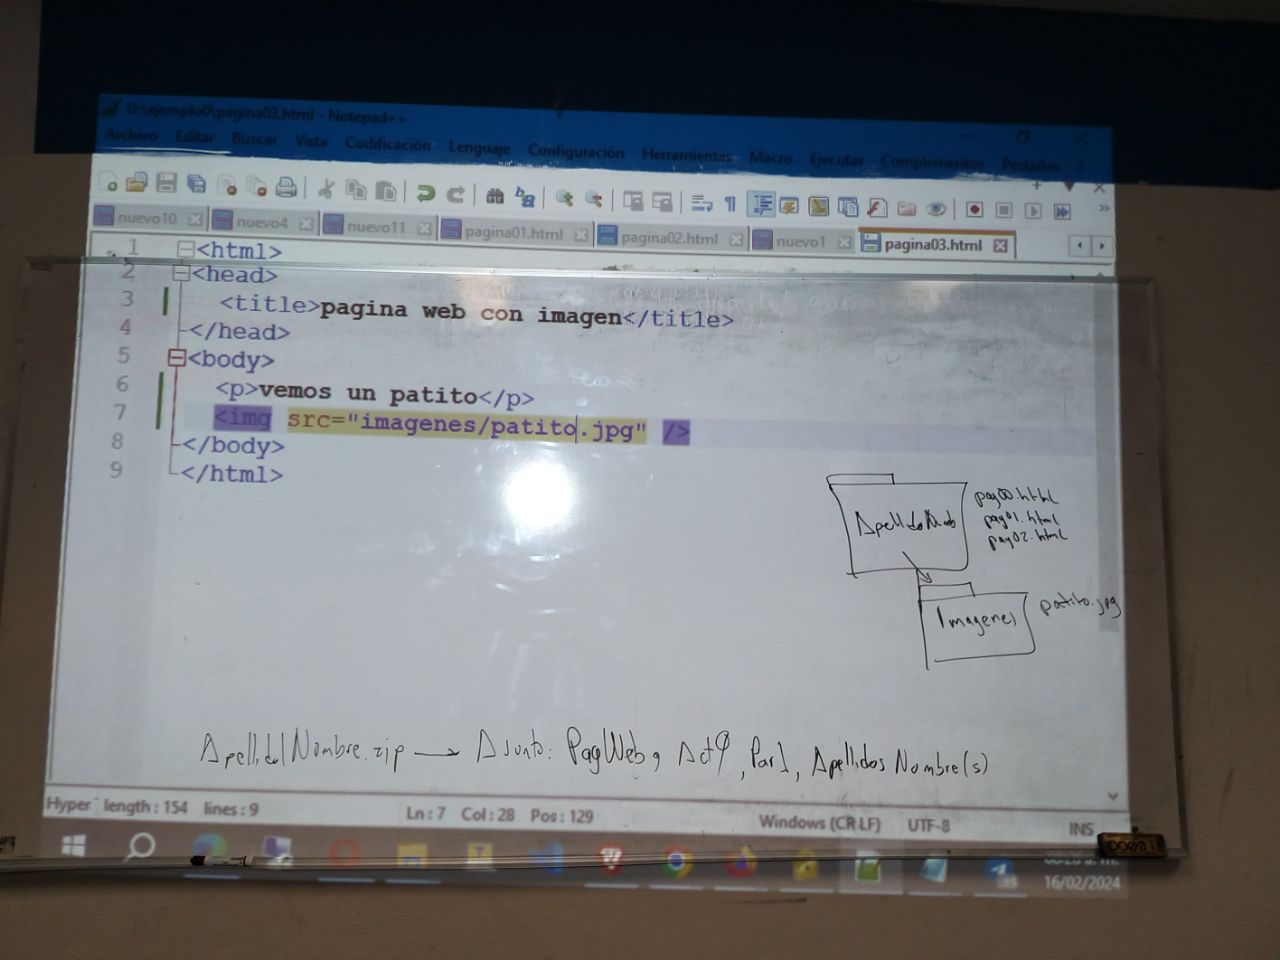 D:\ejemplo0\pagina03.html - Notepad++
Archivo Editar Buscar Vista Codificación Lenguaje Configuración Herramientas Macro Ejecutar Complementos Pestañas ?
nuevo10 nuevo4 nuevo11 pagina01.html pagina02.html nuevo1 pagina03.html
1 <html>
2 <head>
3 <title>pagina web con imagen</title>
4 </head>
5 <body>
6 <p>vemos un patito</p>
7 <img src="imagenes/patito.jpg" />
8 </body>
9 </html>
ApellidoNomb
pag00.html
pag01.html
pag02.html
Imagenes
patito.jpg
Asunto: PagWeb, Par1, Apellidos Nombre(s)
Hyper length : 154 lines : 9 Ln : 7 Col : 28 Pos : 129 Windows (CR LF) UTF-8 INS
16/02/2024